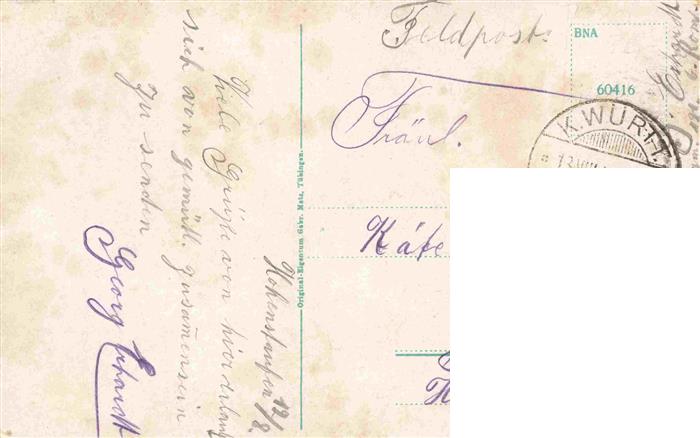 Feldpost.
BNA
60416
K. WÜRTT.
Fräul.
Käte
Original-Eigentum Gebr. Metz, Tübingen.
Hohenstaufen 12/8.
Viele Grüße von hier erlaubt
sich von gemütl. Zusammensein
zu senden
Georg Erhardt